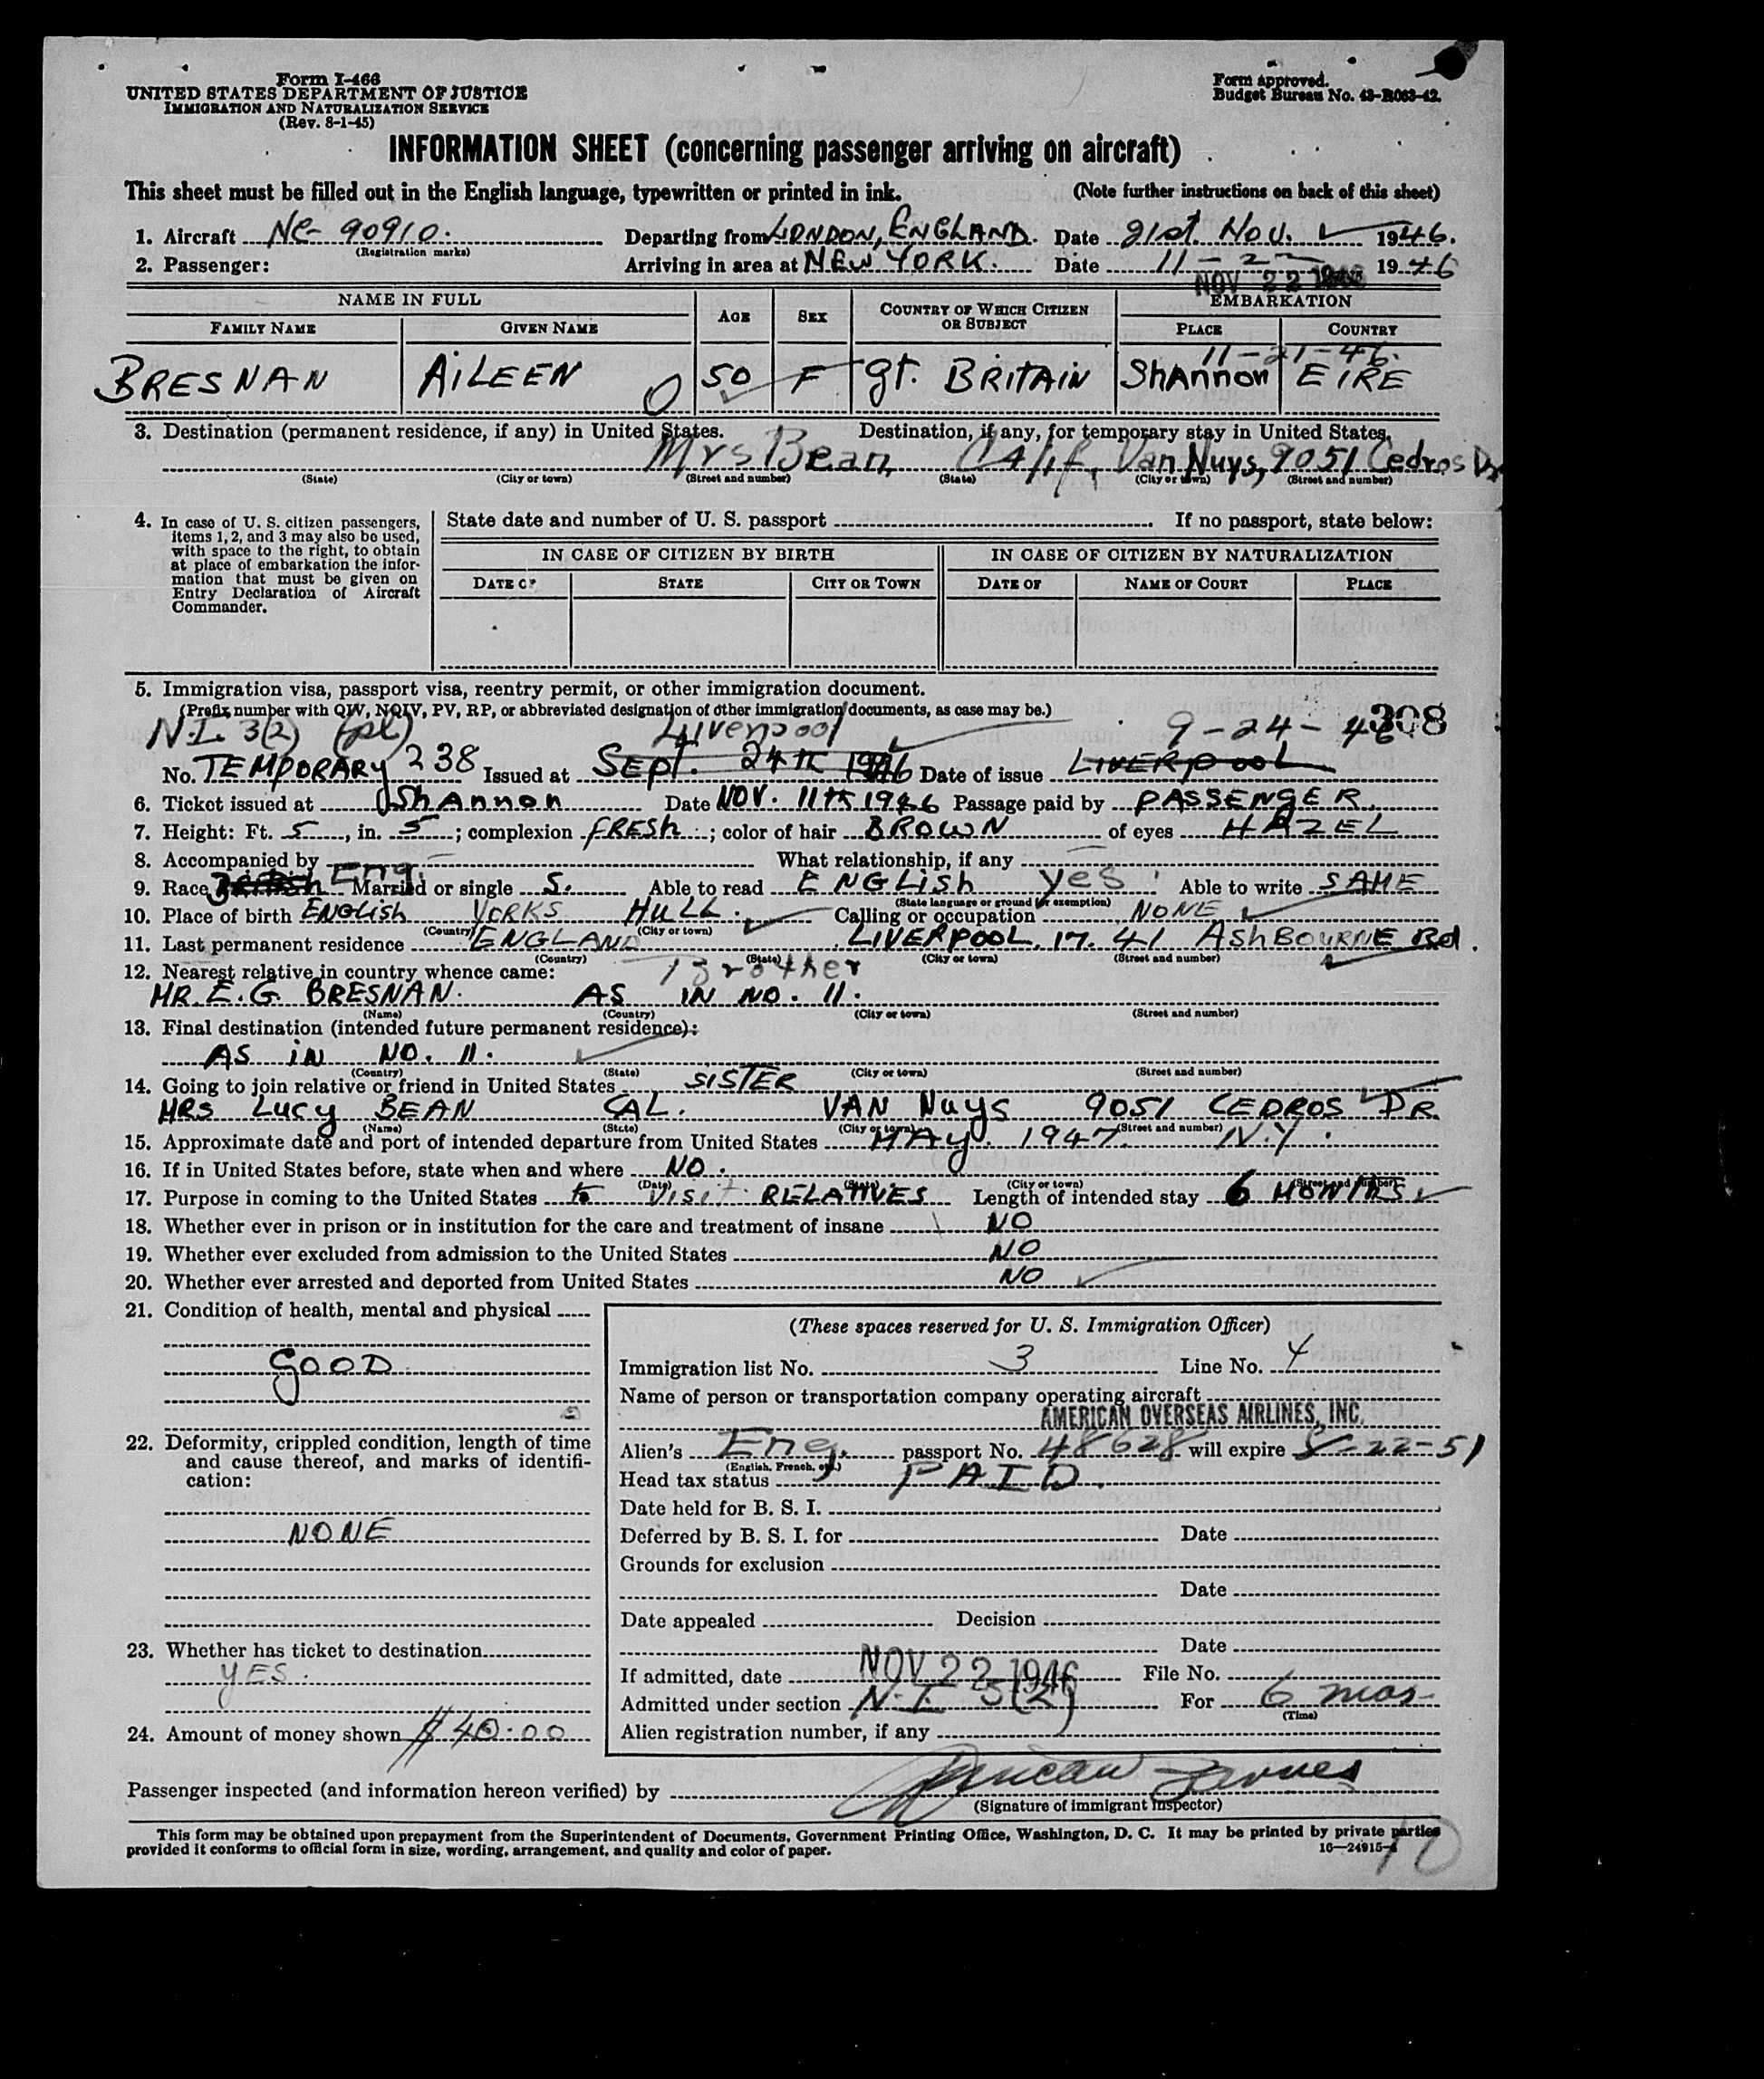 Form I-466
UNITED STATES DEPARTMENT OF JUSTICE
IMMIGRATION AND NATURALIZATION SERVICE
(Rev. 8-1-45)
Form approved.
Budget Bureau No. 43-R063-42.
INFORMATION SHEET (concerning passenger arriving on aircraft)
This sheet must be filled out in the English language, typewritten or printed in ink. (Note further instructions on back of this sheet)
1. Aircraft NC- 90910. Departing from LONDON, ENGLAND. Date 21st. Nov. 1946.
(Registration marks)
2. Passenger: Arriving in area at NEW YORK. Date 11-22 1946
NOV 22 1946
NAME IN FULL AGE SEX COUNTRY OF WHICH CITIZEN OR SUBJECT EMBARKATION
FAMILY NAME GIVEN NAME PLACE COUNTRY
11-21-46.
BRESNAN AiLEEN 50 F gt. BRITAIN ShAnnon EIRE
3. Destination (permanent residence, if any) in United States. Destination, if any, for temporary stay in United States.
Mrs Bean Calif, Van Nuys, 9051 Cedros Dr
(State) (City or town) (Street and number) (State) (City or town) (Street and number)
4. In case of U. S. citizen passengers, items 1, 2, and 3 may also be used, with space to the right, to obtain at place of embarkation the information that must be given on Entry Declaration of Aircraft Commander.
State date and number of U. S. passport If no passport, state below:
IN CASE OF CITIZEN BY BIRTH IN CASE OF CITIZEN BY NATURALIZATION
DATE OF STATE CITY OR TOWN DATE OF NAME OF COURT PLACE
5. Immigration visa, passport visa, reentry permit, or other immigration document.
(Prefix number with QIV, NQIV, PV, RP, or abbreviated designation of other immigration documents, as case may be.) 308
N.I. 3(2) Liverpool 9-24-46
No. TEMPORARY 238 Issued at Sept. 24th 1946 Date of issue LIVERPOOL
6. Ticket issued at ShAnnon Date NOV. 11th 1946 Passage paid by PASSENGER.
7. Height: Ft. 5, in. 5; complexion FRESh; color of hair BROWN of eyes HAZEL
8. Accompanied by What relationship, if any
9. Race Eng. Married or single S. Able to read ENGLISh yes Able to write SAME
(State language or ground for exemption)
10. Place of birth ENGLish YORKS HULL. Calling or occupation NONE
(Country) (City or town)
11. Last permanent residence ENGLAND LIVERPOOL. 17. 41 AShBOURNE Rd.
(Country) (State) (City or town) (Street and number)
12. Nearest relative in country whence came: Brother
MR. E. G. BRESNAN. AS IN NO. 11.
(Name) (Country) (City or town) (Street and number)
13. Final destination (intended future permanent residence):
AS iN NO. 11.
(Country) (State) (City or town) (Street and number)
14. Going to join relative or friend in United States SISTER
MRS Lucy BEAN CAL. VAN Nuys 9051 CEDROS DR.
(Name) (State) (City or town) (Street and number)
15. Approximate date and port of intended departure from United States MAy. 1947. N.Y.
16. If in United States before, state when and where NO.
(Date) (State) (City or town) (Street and number)
17. Purpose in coming to the United States to VISIT RELATIVES Length of intended stay 6 MONTHS
18. Whether ever in prison or in institution for the care and treatment of insane NO
19. Whether ever excluded from admission to the United States NO
20. Whether ever arrested and deported from United States NO
21. Condition of health, mental and physical
GOOD
22. Deformity, crippled condition, length of time and cause thereof, and marks of identification:
NONE
23. Whether has ticket to destination
YES.
24. Amount of money shown $40.00
(These spaces reserved for U. S. Immigration Officer)
Immigration list No. 3 Line No. 4
Name of person or transportation company operating aircraft
AMERICAN OVERSEAS AIRLINES, INC.
Alien's Eng. passport No. 48628 will expire 8-22-51
(English, French, etc.)
Head tax status PAID.
Date held for B. S. I.
Deferred by B. S. I. for Date
Grounds for exclusion
Date
Date appealed Decision
Date
If admitted, date NOV 22 1946 File No.
Admitted under section N.I. 3(2) For 6 mos-
(Time)
Alien registration number, if any
Passenger inspected (and information hereon verified) by
(Signature of immigrant inspector)
This form may be obtained upon prepayment from the Superintendent of Documents, Government Printing Office, Washington, D. C. It may be printed by private parties
provided it conforms to official form in size, wording, arrangement, and quality and color of paper. 16—24915-1